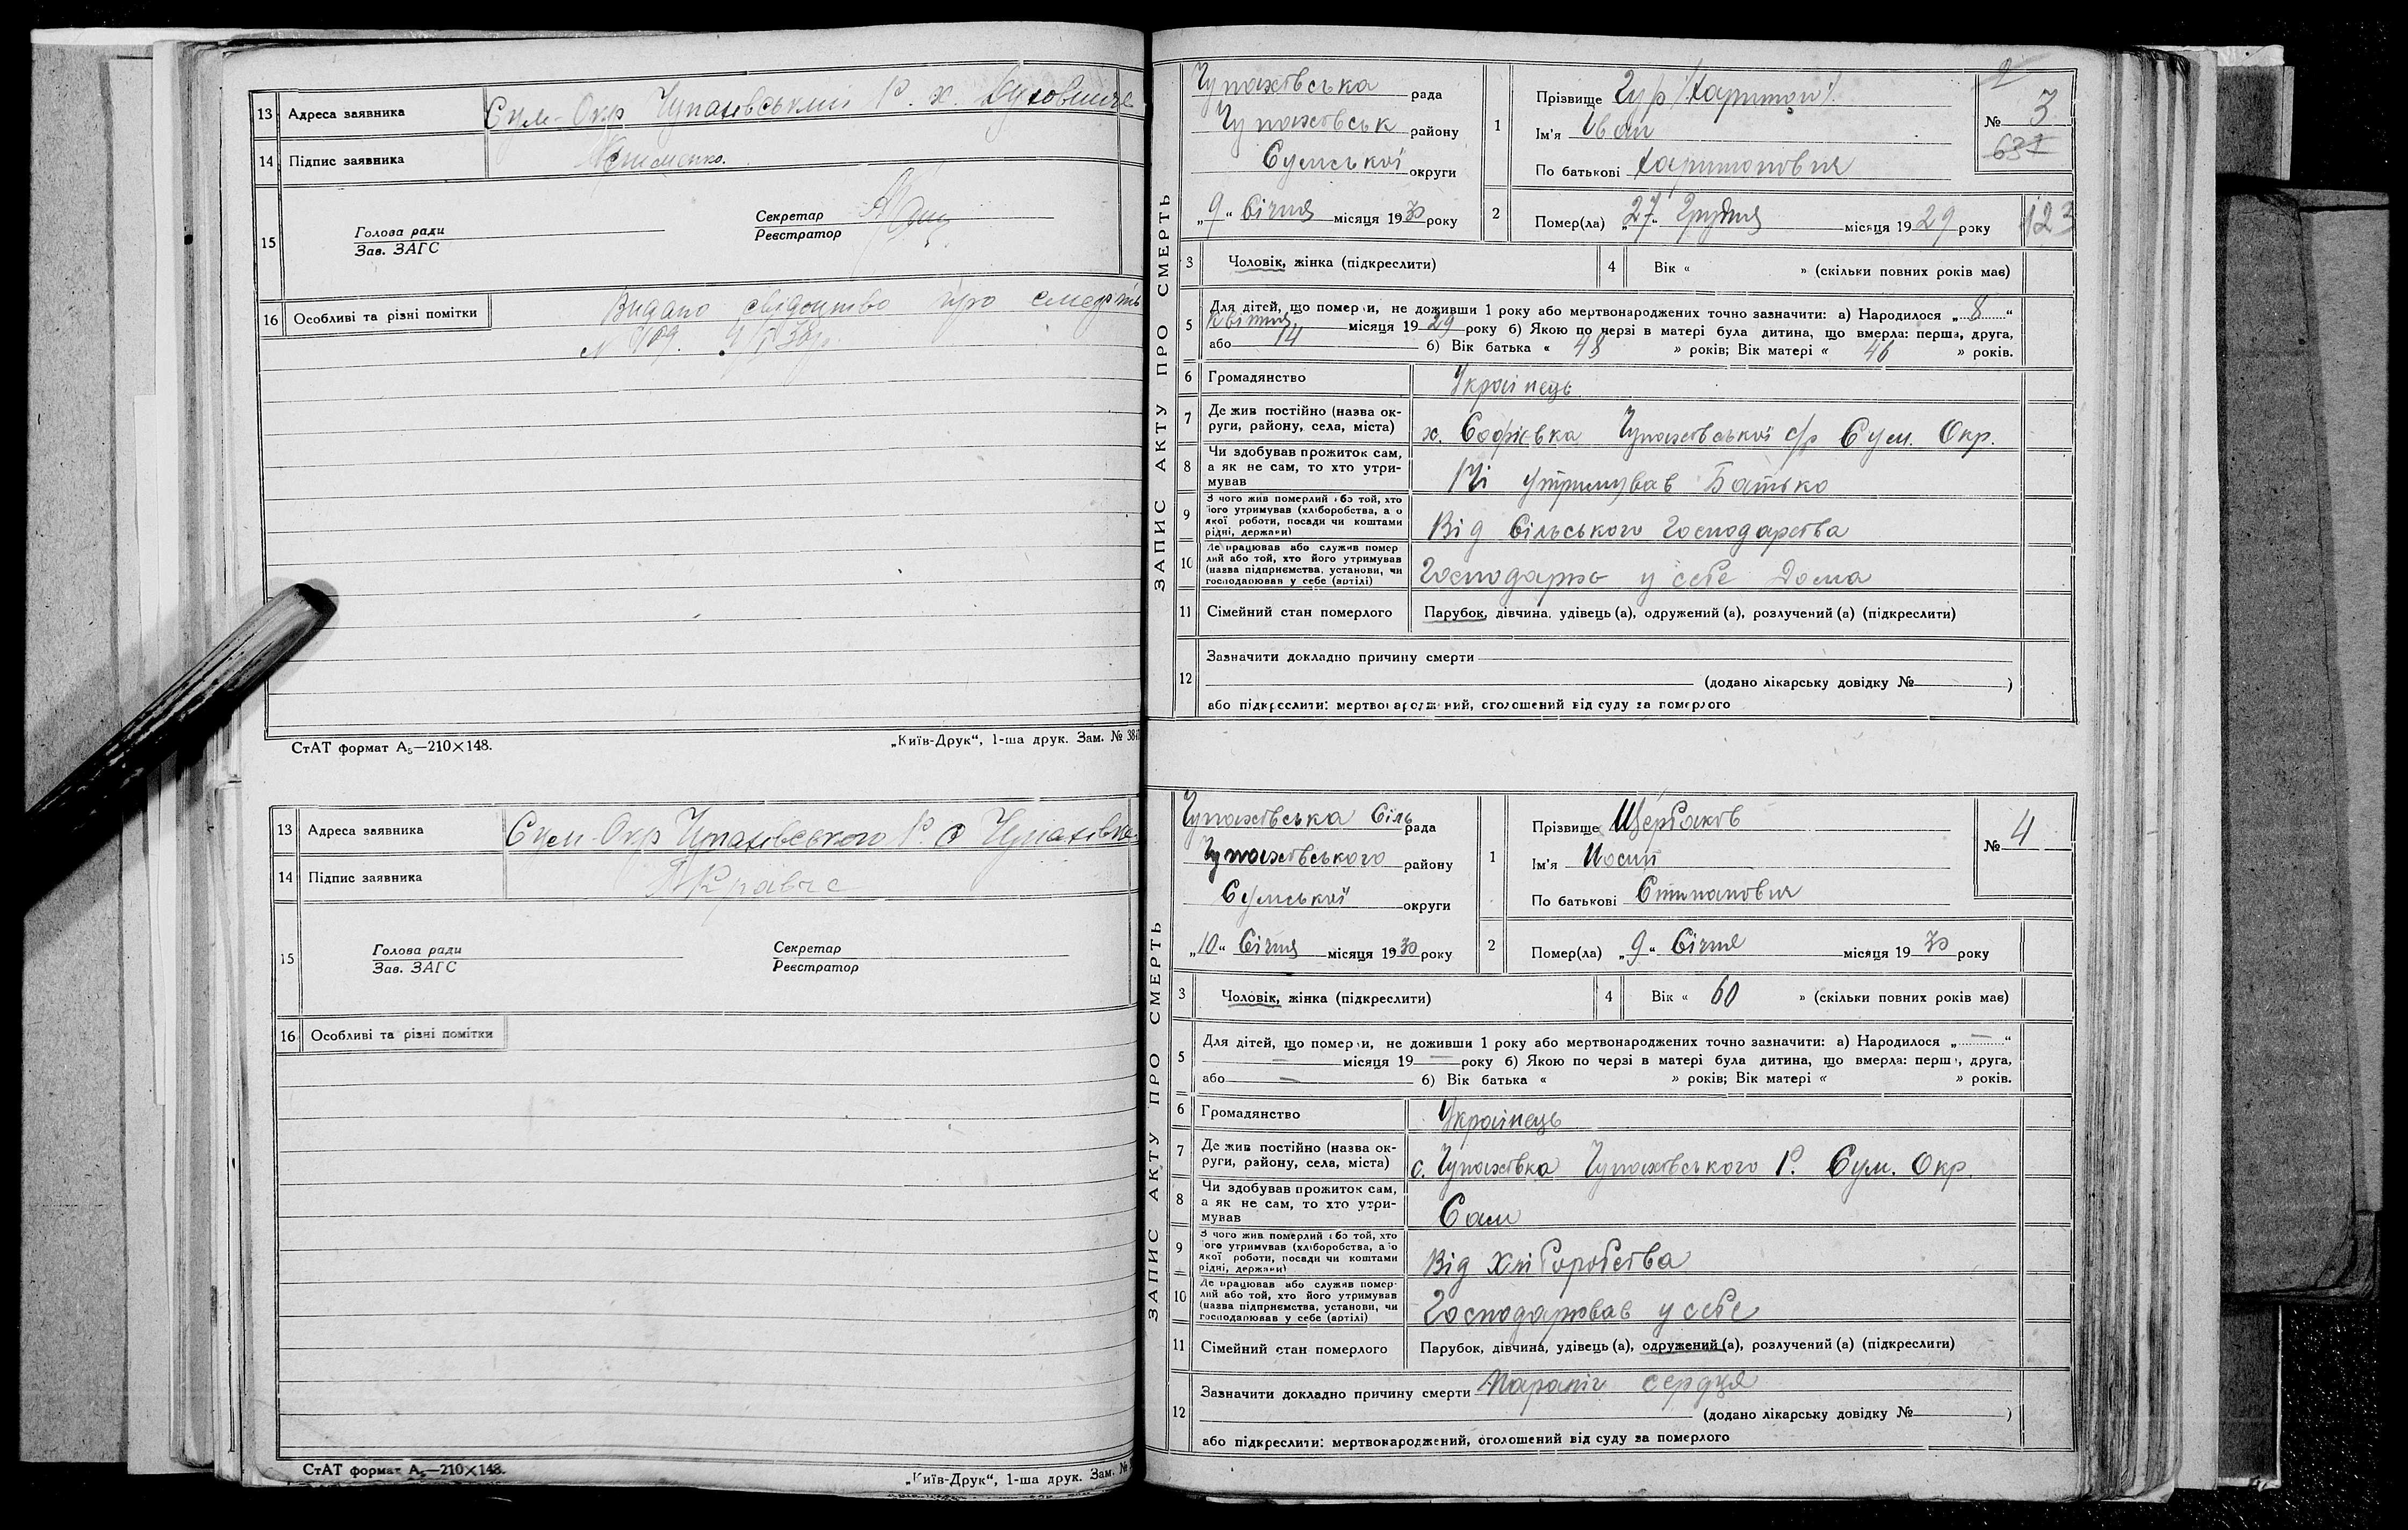 13 Адреса заявника Сум-Окр Чупахівський Р. х.
14 Підпис заявника
15 Голова ради
Зав. ЗАГС
Секретар
Реєстратор
16 Особливі та різні помітки Видано свідоцтво про смерть
№
СтАТ формат А₅—210×148.
„Київ-Друк“, 1-ша друк. Зам. №
13 Адреса заявника Сум-Окр Чупахівського Р. с Чупахівка
14 Підпис заявника
15 Голова ради
Зав. ЗАГС
Секретар
Реєстратор
16 Особливі та різні помітки
СтАТ формат А₅—210×148.
„Київ-Друк“, 1-ша друк. Зам. №
ЗАПИС АКТУ ПРО СМЕРТЬ
Чупахівська рада
Чупахівськ району
Сумської округи
„9“ Січня місяця 1930 року
1 Прізвище Гур /Харитон/
Ім'я Іван
По батькові Харитонович
№ 3
632
2 Помер(ла) „27“ Грудня місяця 1929 року
123
3 Чоловік, жінка (підкреслити)
4 Вік « » (скільки повних років має)
5 Для дітей, що померли, не доживши 1 року або мертвонароджених точно зазначити: а) Народилося „8“
Квітня місяця 1929 року б) Якою по черзі в матері була дитина, що вмерла: перша, друга,
або 14 б) Вік батька « 48 » років; Вік матері « 46 » років.
6 Громадянство Українець
7 Де жив постійно (назва округи, району, села, міста) х. Софієвка Чупахівської с/р Сум. Окр.
8 Чи здобував прожиток сам,
а як не сам, то хто утри-
мував Ні утримував Батько
9 З чого жив померлий або той, хто
його утримував (хліборобства, або
якої роботи, посади чи коштами
рідні, держави) Від Сільського Господарства
10 Де працював або служив помер
лий або той, хто його утримував
(назва підприємства, установи, чи
господарював у себе (артілі) у себе Дома
11 Сімейний стан померлого Парубок, дівчина, удівець (а), одружений (а), розлучений (а) (підкреслити)
12 Зазначити докладно причину смерти
(додано лікарську довідку № )
або підкреслити: мертвонароджений, оголошений від суду за померлого
ЗАПИС АКТУ ПРО СМЕРТЬ
Чупахівська Сіль рада
Чупахівського району
Сумської округи
„10“ Січня місяця 1930 року
1 Прізвище Щербаков
Ім'я Йосип
По батькові Стипанович
№ 4
2 Помер(ла) „9“ Січне місяця 1930 року
3 Чоловік, жінка (підкреслити)
4 Вік « 60 » (скільки повних років має)
5 Для дітей, що померли, не доживши 1 року або мертвонароджених точно зазначити: а) Народилося „—“
— місяця 19— року б) Якою по черзі в матері була дитина, що вмерла: перша, друга,
або — б) Вік батька « » років; Вік матері « » років.
6 Громадянство Українець
7 Де жив постійно (назва ок-
руги, району, села, міста) с. Чупахівка Чупахівського Р. Сум. Окр.
8 Чи здобував прожиток сам,
а як не сам, то хто утри-
мував Сам
9 З чого жив померлий або той, хто
його утримував (хліборобства, або
якої роботи, посади чи коштами
рідні, держави) Від Хліборобства
10 Де працював або служив помер-
лий або той, хто його утримував
(назва підприємства, установи, чи
господарював у себе (артілі) Господарював у себе
11 Сімейний стан померлого Парубок, дівчина, удівець (а), одружений (а), розлучений (а) (підкреслити)
12 Зазначити докладно причину смерти Параліч сердця
(додано лікарську довідку № )
або підкреслити: мертвонароджений, оголошений від суду за померлого